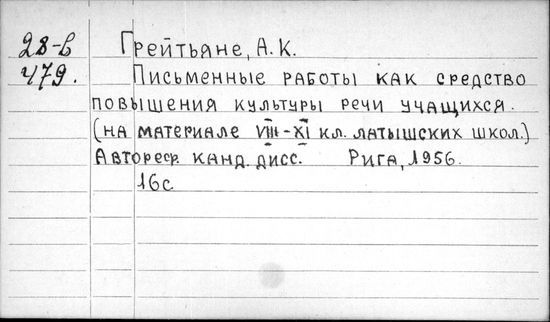 28-в Грейтьяне, А. К.
479. Письменные работы как средство
повышения культуры речи учащихся.
(на материале VIII-XI кл. латышских школ.)
Автореф. канд. дисс. Рига, 1956.
16с